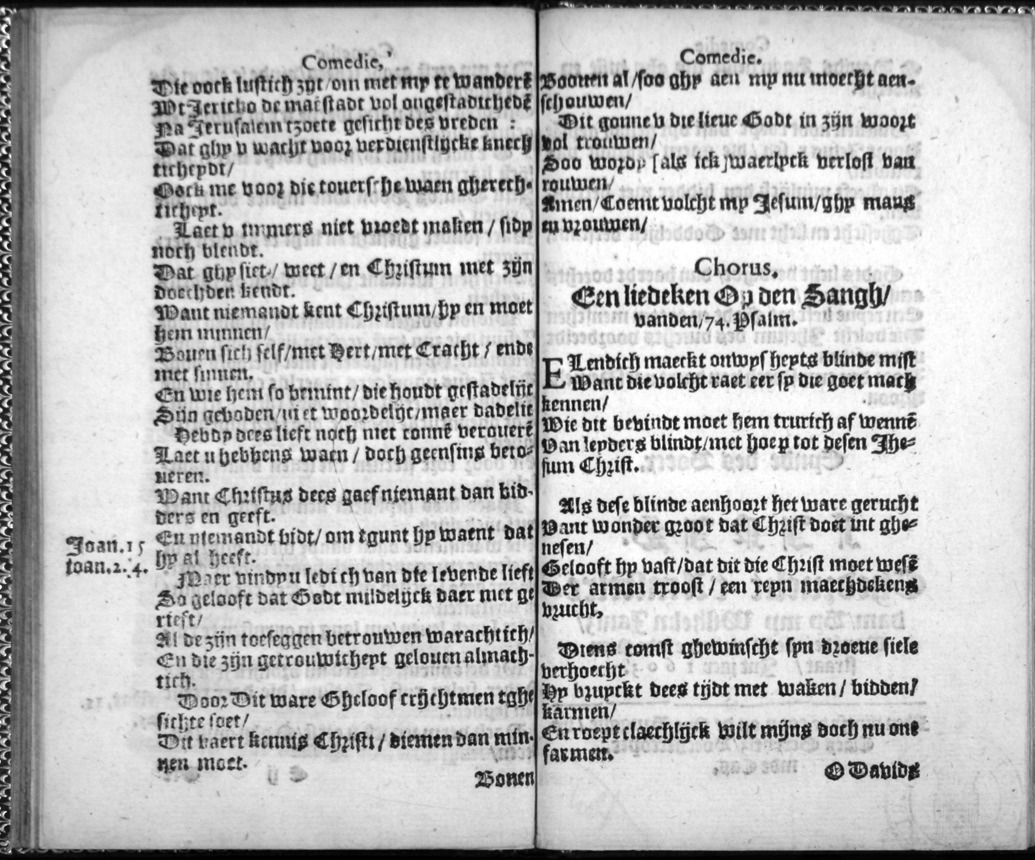 Comedie,
Die oock lustich zyt/om met my te wanderē
Wt Jericho de maestadt vol ongestadichedē
Na Jerusalem tzoete gesicht des vreden :
Dat ghy v wacht voor verdienstlycke knech
ticheydt/
Oock me voor die toversche waen gherech-
ticheyt.
Laet v immers niet vroedt maken / sidy
noch blendt.
Dat ghy siet/ weet / en Christum met zijn
doechden kendt.
Want niemandt kent Christum/hy en moet
hem minnen/
Boven sich self/met Hert/met Cracht / ende
met sinnen.
En wie hem so bemint/die houdt gestadelijc
Sijn geboden/niet woordelijc/maer dadelic
Hebdy dees lieft noch niet connē verouerē
Laet u hebbens waen / doch geensins beto-
ueren.
Want Christus dees gaef niemant dan bid-
ders en geeft.
En niemandt bidt/ om tgunt hy waent dat
hy al heeft.
Joan.15
Ioan.2.4.
Maer vindy u ledich van die levende lieft
So gelooft dat Godt mildelijck daer met ge
rieft/
Al de zijn toeseggen betrouwen warachtich/
En die zijn getrouwicheyt gelouen almach-
tich.
Door Dit ware Gheloof crijchtmen tghe
sichte soet/
Dit baert kennis Christi/diemen dan min-
nen moet.
Bonen
Comedie.
Boouen al/soo ghy aen my nu moecht aen-
schouwen/
Dit gonne v die lieue Godt in zijn woort
vol trouwen/
Soo wordy [als ick]waerlyck verlost van
rouwen/
Amen/Coemt volcht my Jesum/ghy mans
en vrouwen/
Chorus.
Een liedeken Op den Sangh/
vanden/74. Psalm.
ELendich maeckt onwys heyts blinde mist
Want die volcht raet eer sy die goet mach
kennen/
Wie dit bevindt moet hem trurich af wennē
Van leyders blindt/met hoep tot desen Jhe-
sum Christ.
Als dese blinde aenhoort het ware gerucht
Vant wonder groot dat Christ doet int ghe-
nesen/
Gelooft hy vast/dat dit die Christ moet wesē
Der armen troost / een reyn maechdekens
vrucht,
Diens comst ghewinscht syn droeue siele
verhoecht
Hy bruyckt dees tijdt met waken/ bidden/
karmen/
En roept claechlijck wilt mijns doch nu ont
farmen.
O Davids